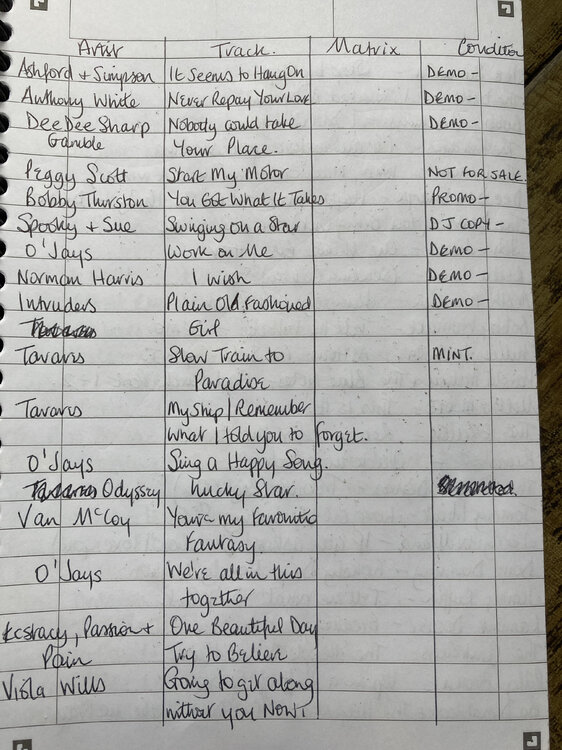 Artist Track. Matrix Condition
Ashford + Simpson It Seems to Hang On DEMO -
Anthony White Never Repay Your Love DEMO -
Dee Dee Sharp Nobody could take DEMO -
Gamble Your Place.
Peggy Scott Start My Motor NOT FOR SALE.
Bobby Thurston You Got What It Takes PROMO -
Spooky + Sue Swinging on a Star DJ COPY -
O'Jays Work on Me DEMO -
Norman Harris I wish DEMO -
Intruders Plain Old Fashioned DEMO -
Girl
Tavares Slow Train to MINT.
Paradise
Tavares My Ship / Remember
What I told you to forget.
O'Jays Sing a Happy Song.
Odyssey Lucky Star.
Van McCoy You're my Favourite
Fantasy
O'Jays We're all in this
together
Ecstacy, Passion + One Beautiful Day
Pain Try to Believe
Viola Wills Going to get along
without you Now.